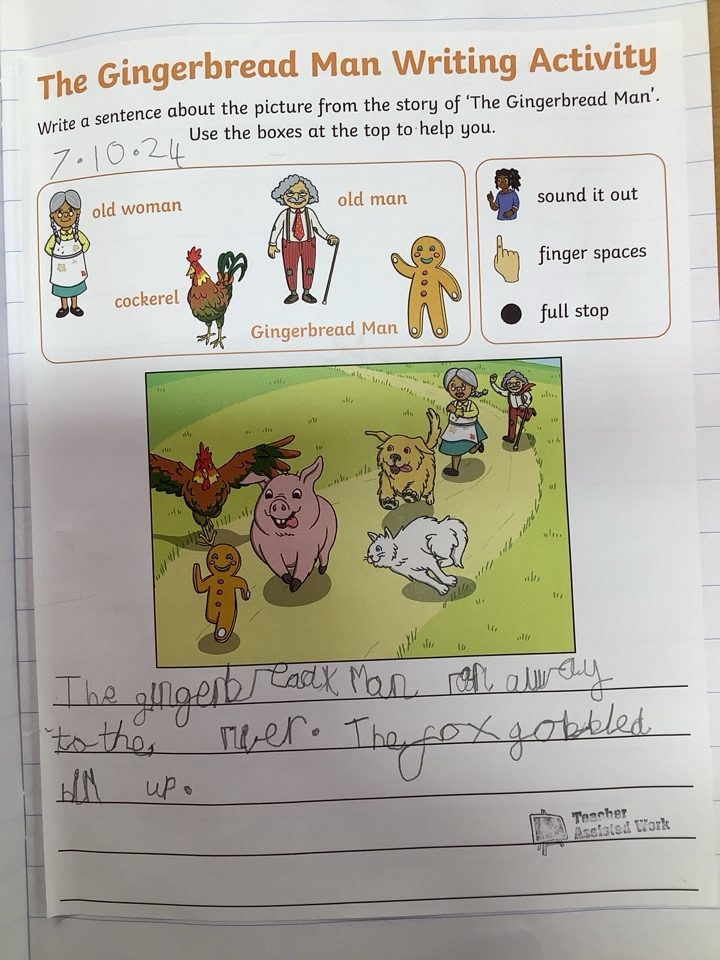 The Gingerbread Man Writing Activity
Write a sentence about the picture from the story of ‘The Gingerbread Man’.
Use the boxes at the top to help you.
7.10.24
old woman
old man
cockerel
Gingerbread Man
sound it out
finger spaces
full stop
The gingerbread Man ran away
to the river. The fox gobbled
up.
Teacher
Assisted Work